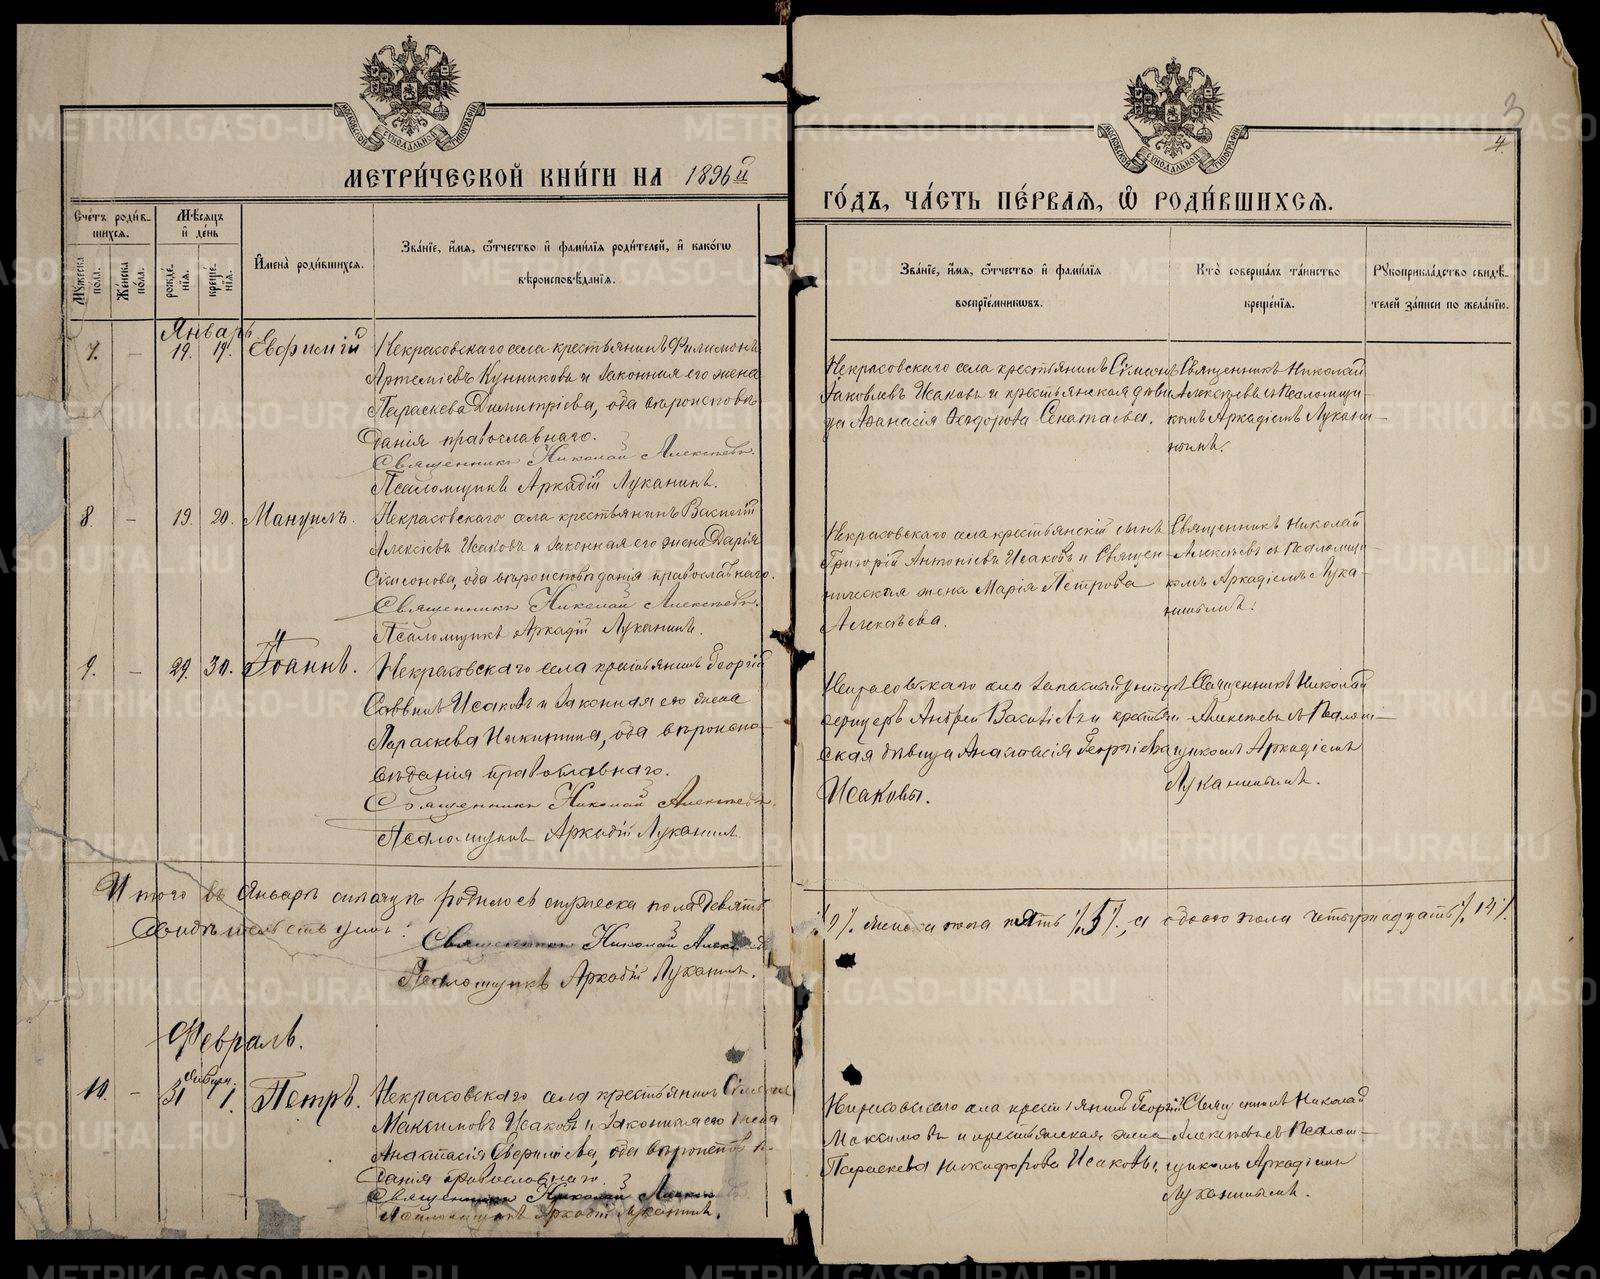 МЕТРИ́ЧЕСКОЙ КНИ́ГИ НА 1896й
ГО́ДЪ, ЧА́СТЬ ПЕ́РВАЯ, Ѡ҆ РОДИ́ВШИХСЯ.
Сче́тъ роди́в-
шихся.
Мѣ́сяцъ
и҆ де́нь
Мꙋ́жеска
по́ла.
Же́нска
по́ла.
рожде́-
нїя.
креще́-
нїя.
И҆мена̀ роди́вшихся.
Зва́нїе, и҆́мя, ѻ҆́тчество и҆ фами́лїя роди́телей, и҆ како́гѡ
вѣроисповѣ́данїя.
Зва́нїе, и҆́мя, ѻ҆́тчество и҆ фами́лїя
воспрїе́мникѡвъ.
Кто̀ соверша́лъ та́инство
креще́нїя.
Рꙋкоприкла́дство свидѣ́-
телей за́писи по жела́нїю.
Январь
7. – 19. 19. Евфимій
Некрасовскаго села крестьянинъ Филимонъ
Артеміевъ Кунниковъ и законная его жена
Параскева Димитріева, оба вѣроисповѣ-
данія православнаго.
Священникъ Николай Алексѣевъ.
Псаломщикъ Аркадій Луканинъ.
Некрасовскаго села крестьянинъ Сімеонъ
Іаковлевъ Исаковъ и крестьянская дѣви
ца Афанасія Феодорова
Священникъ Николай
Алексѣевъ съ Псаломщи-
комъ Аркадіемъ Лукани-
нымъ.
8. – 19. 20. Мануилъ.
Некрасовскаго села крестьянинъ Василій
Алексіевъ Исаковъ и законная его жена Дарія
Сімеонова, оба вѣроисповѣданія православнаго.
Священникъ Николай Алексѣевъ.
Псаломщикъ Аркадій Луканинъ.
Некрасовскаго села крестьянскій сынъ
Григорій Антоніевъ Исаковъ и Священ-
ническая жена Марія Петрова
Алексѣева.
Священникъ Николай
Алексѣевъ съ Псаломщи-
комъ Аркадіемъ Лука-
нинымъ.
9. – 29. 30. Іоаннъ.
Некрасовскаго села крестьянинъ Георгій
Саввинъ Исаковъ и законная его жена
Параскева Никитина, оба вѣроиспо-
вѣданія православнаго.
Священникъ Николай Алексѣевъ.
Псаломщикъ Аркадій Луканинъ
Некрасовскаго села запасный унтеръ
офицеръ Андрей Васильевъ и крестьян
ская дѣвица Анастасія Георгіева
Исаковы.
Священникъ Николай
Алексѣевъ съ Псалом-
щикомъ Аркадіемъ
Луканинымъ.
Итого въ Январѣ мѣсяцѣ родилось мужеска пола девять
/9/. женска пола пять /5/., а обоего пола четырнадцать /14/.
Свидѣтельствуемъ:
Священникъ Николай Алексѣевъ
Псаломщикъ Аркадій Луканинъ.
Февраль.
10. – 31 января. 1. Петръ.
Некрасовскаго села крестьянинъ Сімеонъ
Максимовъ Исаковъ и законная его жена
Анастасія оба вѣроисповѣ-
данія православнаго.
Священникъ Николай Алексѣевъ
Псаломщикъ Аркадій Луканинъ.
Некрасовскаго села крестьянинъ Георгій
Максимовъ и крестьянская жена
Параскева Никифорова Исаковы.
Священникъ Николай
Алексѣевъ съ Псалом-
щикомъ Аркадіемъ
Луканинымъ.